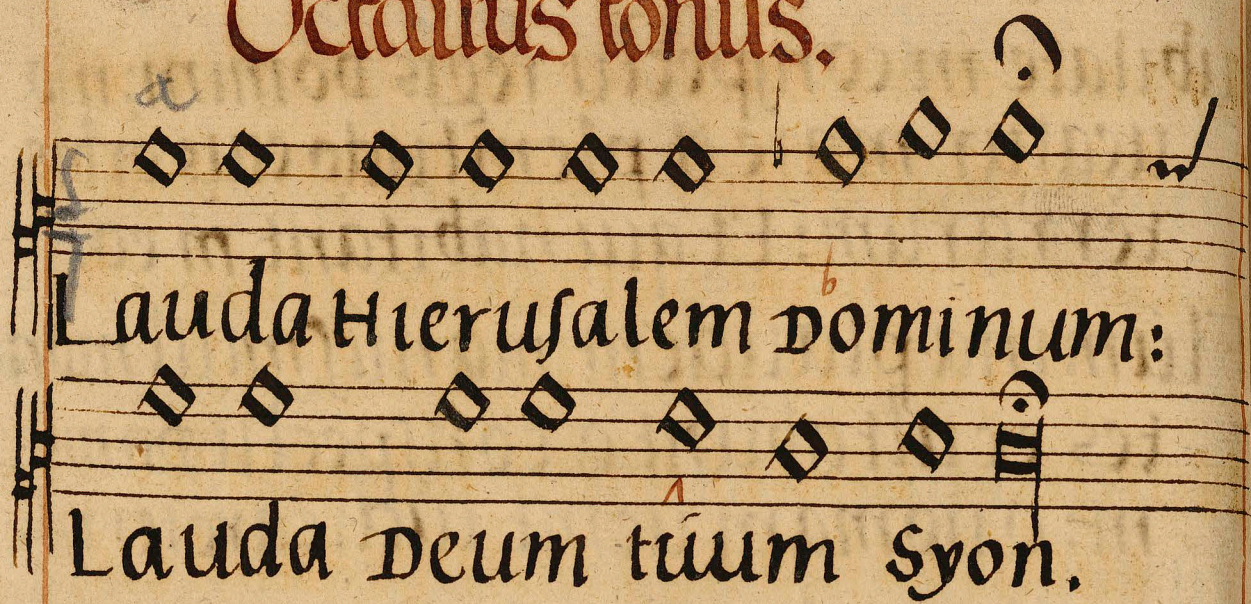 Octauus tonus.
a
Lauda Hieruſalem Dominum:
b
Lauda Deum túum Syon.